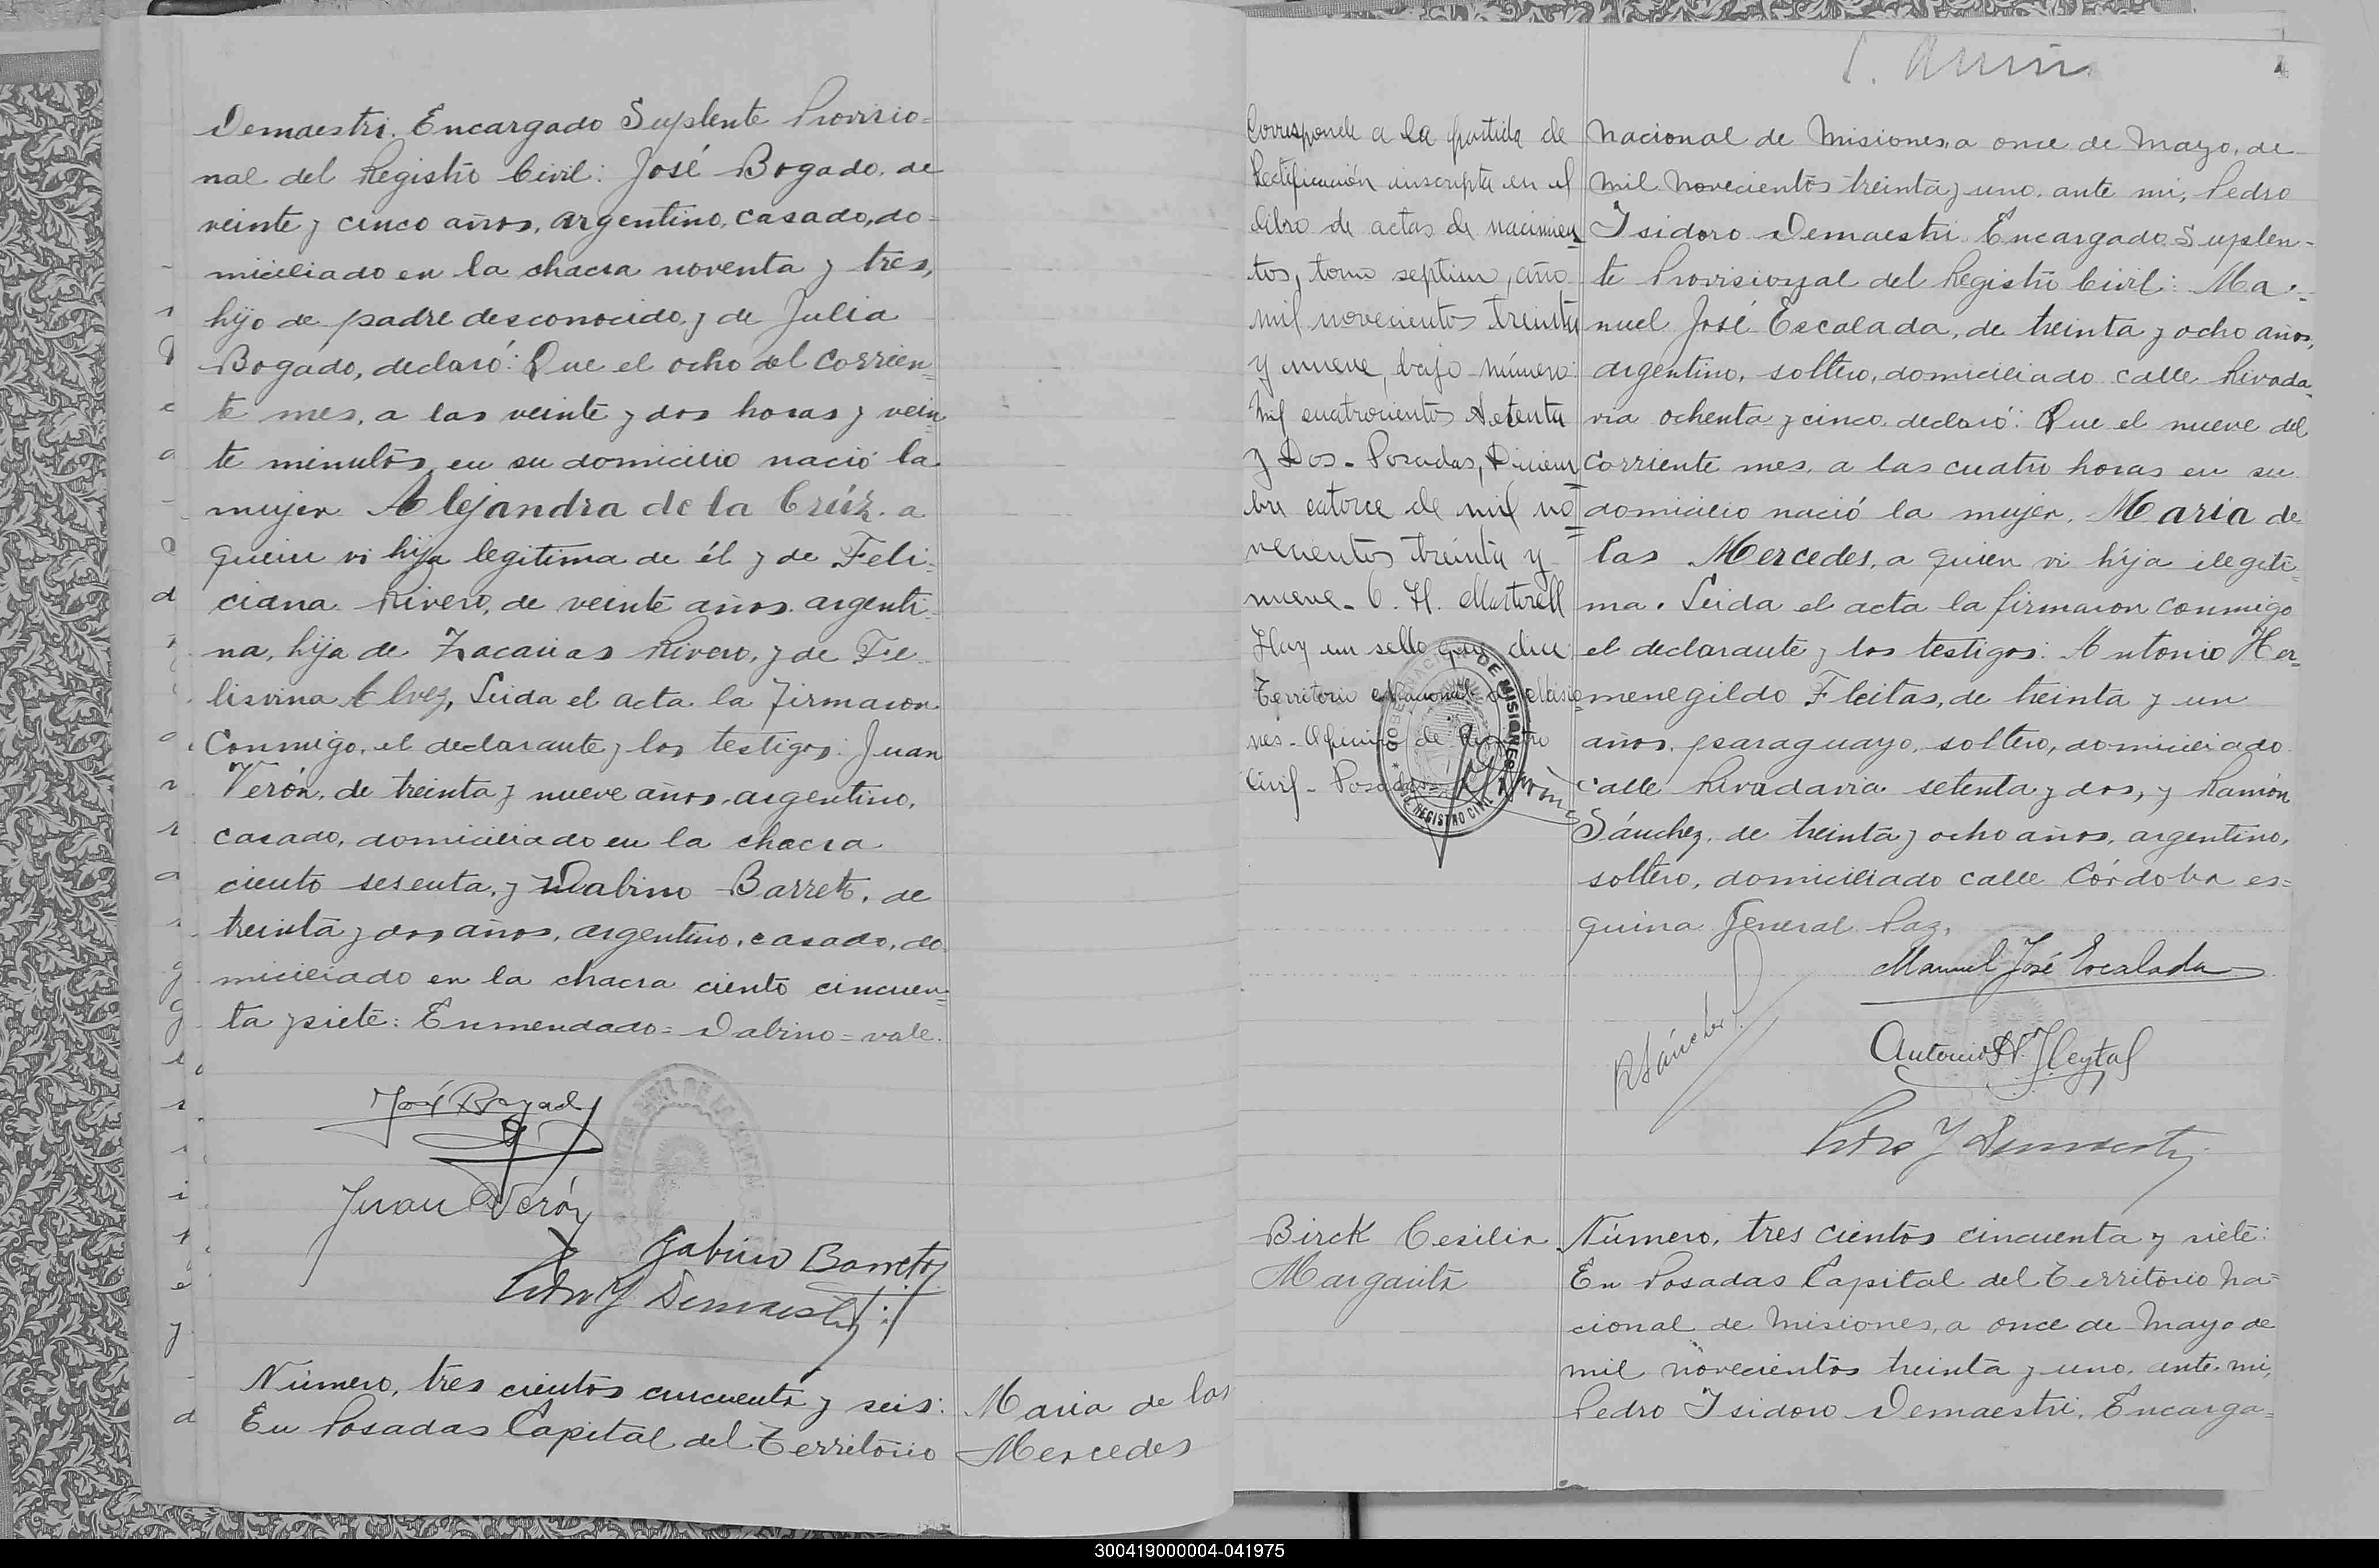 Demaestri. Encargado Suplente Provisio=
nal del Registro Civil: José Bogado, de
veinte y cinco años, argentino, casado, do=
miciliado en la chacra noventa y tres,
hijo de padre desconocido, y de Julia
Bogado, declaró: Que el ocho del corrien=
te mes, a las veinte y dos horas y vein=
te minutos, en su domicilio nació la
mujer Alejandra de la Crúz, a
quien vi hija legitima de él y de Feli=
ciana Rivero, de veinte años, argenti=
na, hija de Zacarias Rivero, y de Fe=
lisvina Alvez, Leida el acta la firmaron
conmigo, el declarante y los testigos: Juan
Verón, de treinta y nueve años, argentino,
casado, domiciliado en la chacra
ciento sesenta, y Dabino Barreto, de
treinta y dos años, argentino, casado, do=
miciliado en la chacra ciento cincuen=
ta y siete: Enmendado=Dabino=vale.
José Bogado
Juan Verón
Gabino Barreto
Pedro Y Demaestri
Número, tres cientos cincuenta y seis:
En Posadas Capital del Territorio
Maria de las
Mercedes
Corresponde a la partida de
Rectificación inscripta en el
libro de actas de nacimien=
tos, tomo septimo, año
mil novecientos treinta
y nueve, bajo número
mil cuatrocientos setenta
y Dos - Posadas, Diciem
bre catorce de mil no
vecientos treinta y
nueve - C. H. Martorell
Hay un sello que dice
Territorio Nacional de Misio=
nes - Oficina de Registro
Civil - Posadas
GOBERNACION DE MISIONES
REGISTRO CIVIL
nacional de Misiones, a once de Mayo, de
mil novecientos treinta y uno, ante mi, Pedro
Isidoro Demaestri. Encargado Suplen=
te Provisional del Registro Civil: Ma=
nuel José Escalada, de treinta y ocho años,
argentino, soltero, domiciliado calle Rivada
via ochenta y cinco, declaró: Que el nueve del
corriente mes, a las cuatro horas en su
domicilio nació la mujer, Maria de
las Mercedes, a quien vi hija ilegiti=
ma. Leida el acta la firmaron conmigo
el declarante y los testigos: Antonio Her=
menegildo Fleitas, de treinta y un
años, paraguayo, soltero, domiciliado
calle Rivadavia setenta y dos, y Ramón
Sánchez, de treinta y ocho años, argentino,
soltero, domiciliado calle Córdoba es=
quina General Paz.
Manuel José Escalada
RSánchez
Antonio H. Fleytas
Pedro Y Demaestri
Birck Cesilia
Margarita
Número, tres cientos cincuenta y siete:
En Posadas Capital del Territorio Na=
cional de Misiones, a once de Mayo de
mil novecientos treinta y uno, ante mi,
Pedro Isidoro Demaestri, Encarga=
300419000004-041975